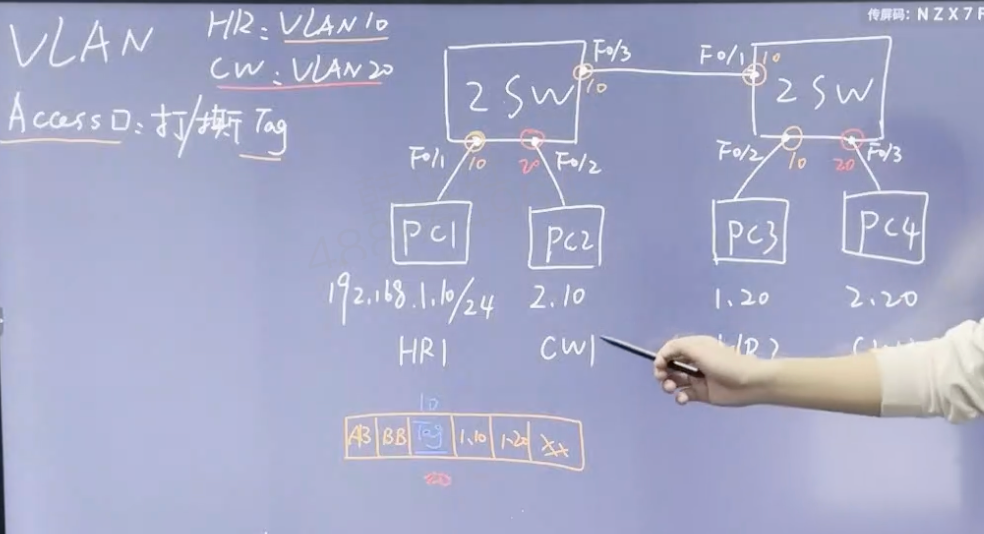 传屏码: NZX7F
VLAN
HR: VLAN10
CW: VLAN20
Access口: 打/撕 Tag
F0/3
F0/1
10
10
2SW
2SW
F0/1
10
20
F0/2
F0/2
10
20
F0/3
PC1
PC2
PC3
PC4
192.168.1.10/24
2.10
1.20
2.20
HR1
CW1
10
AB
BB
Tag
1.10
1.20
XX